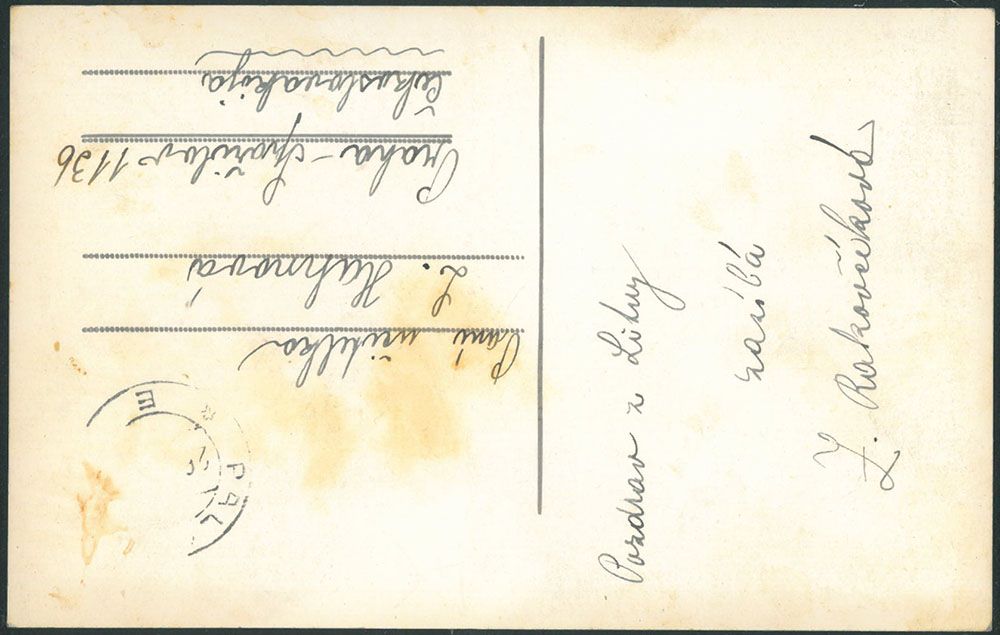 Paní učitelka
L. Hahnová
Praha - Spořilov 1136
Čekoslovakija
Pozdrav z Lůhy
zasílá
Z. Rakovčíková